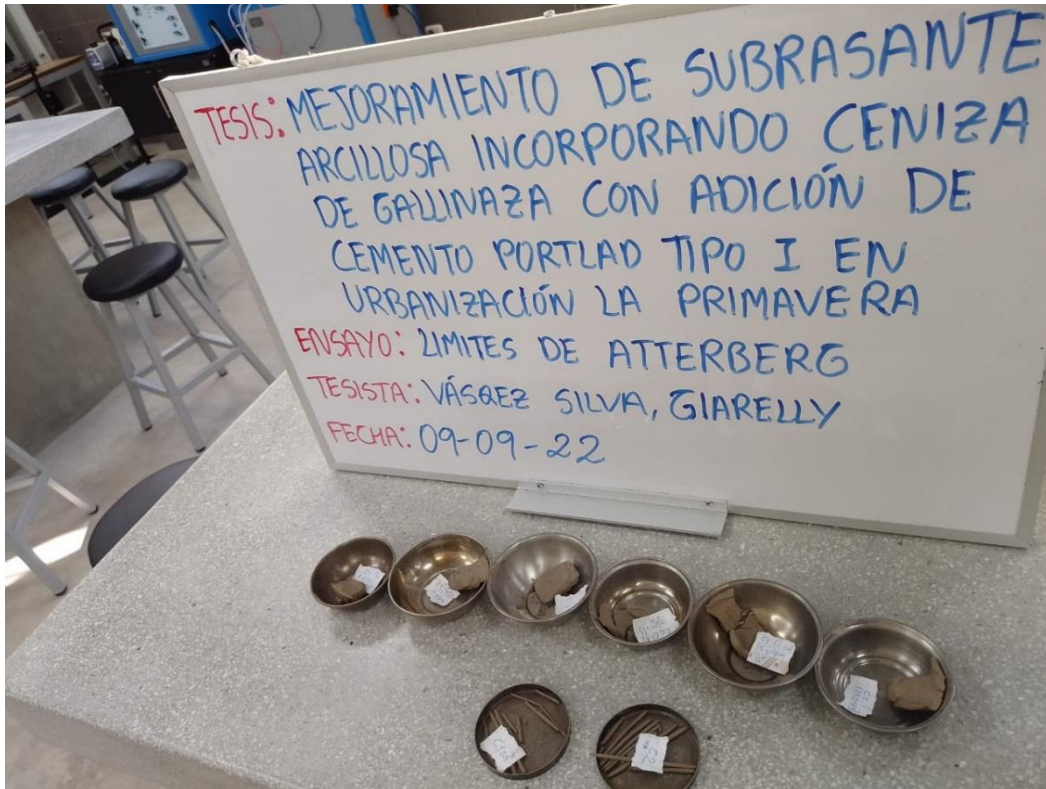 TESIS: MEJORAMIENTO DE SUBRASANTE
ARCILLOSA INCORPORANDO CENIZA
DE GALLINAZA CON ADICIÓN DE
CEMENTO PORTLAD TIPO I EN
URBANIZACIÓN LA PRIMAVERA
ENSAYO: LIMITES DE ATTERBERG
TESISTA: VÁSQEZ SILVA, GIARELLY
FECHA: 09-09-22